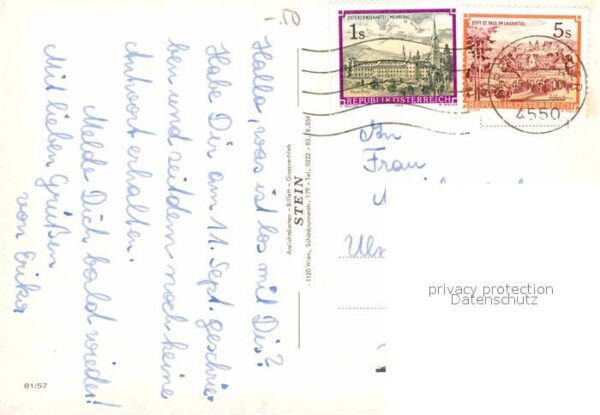 Hallo, was ist los mit Dir?
Habe Dir am 11. Sept. geschrie-
ben und seitdem noch keine
Antwort erhalten.
Melde Dich bald wieder!
Mit lieben Grüßen
von Erika
81/57
Ansichtskarten - Billett - Grossvertrieb
STEIN
1120 Wien, Schönbrunnerstr. 179 - Tel. 0222 - 83
ZISTERZIENSERABTEI MEHRERAU
1s
REPUBLIK ÖSTERREICH
STIFT ST. PAUL IM LAVANTTAL
5s
REPUBLIK ÖSTERREICH
4550
An
Frau
privacy protection
Datenschutz